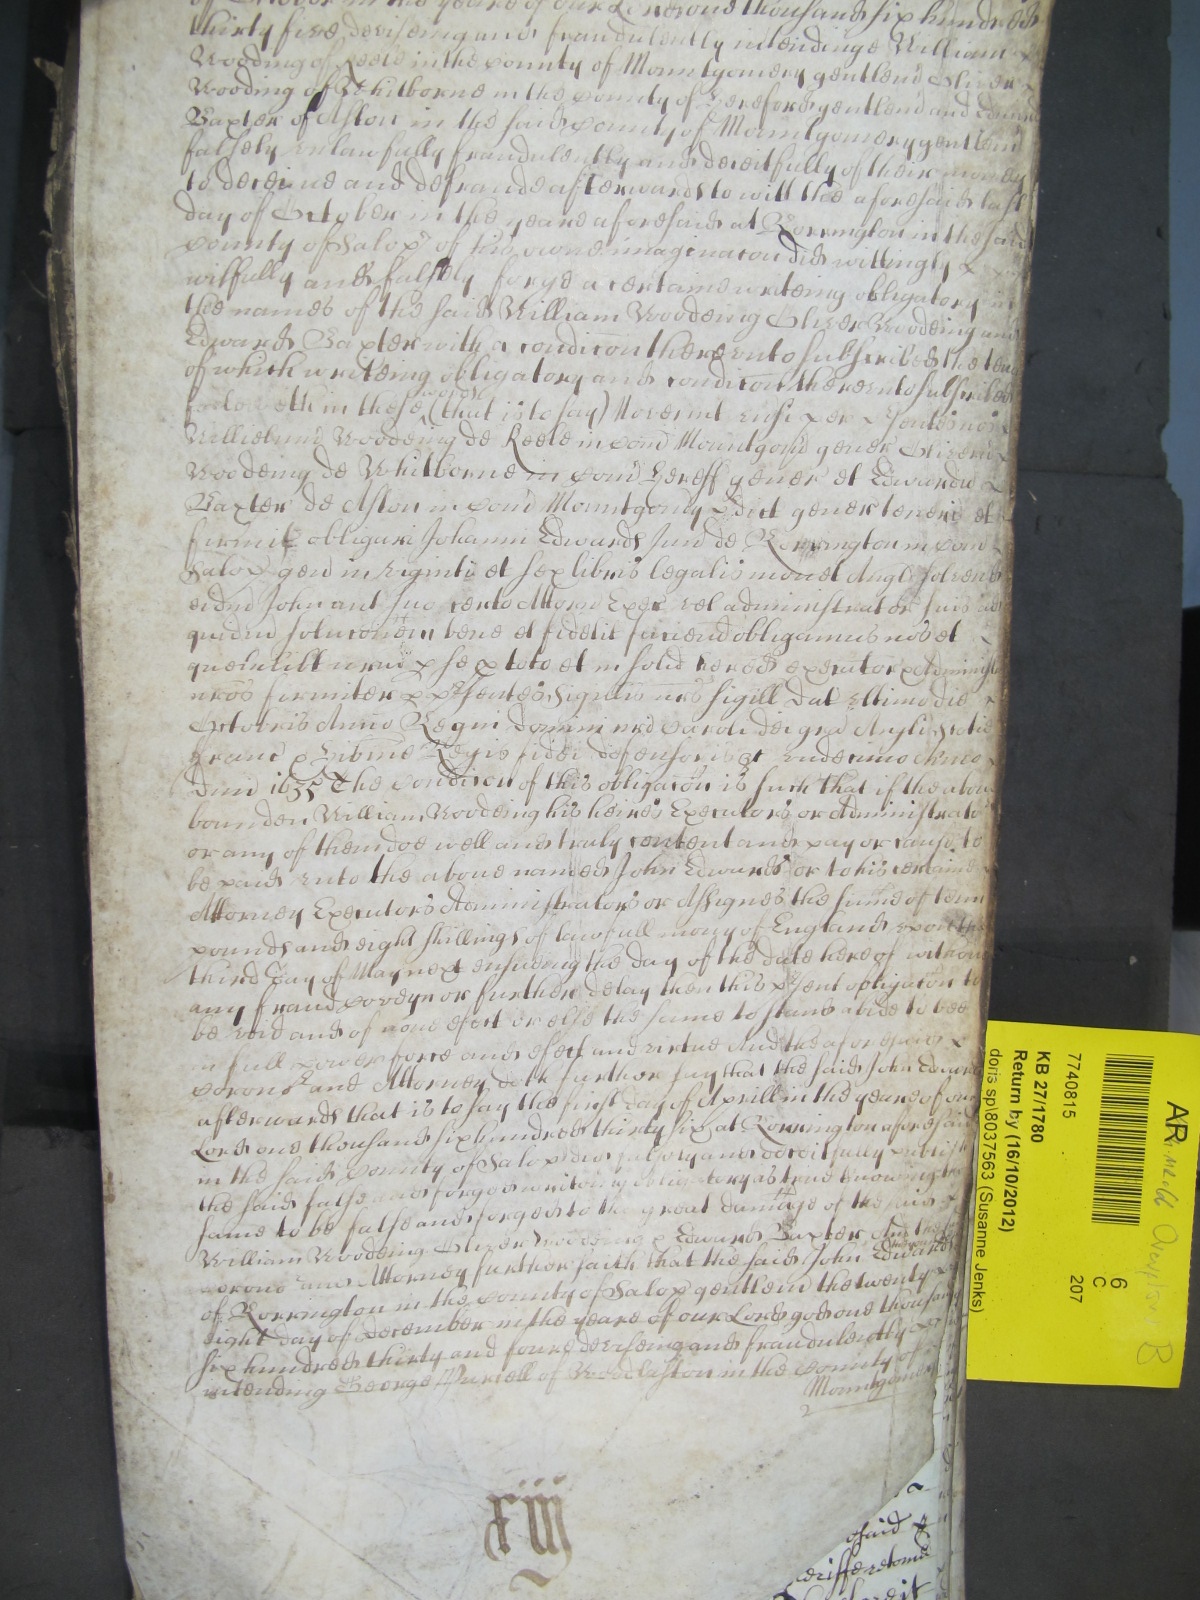 of October in the yeare of our Lord one thousand six hundred
thirty five deviseing and fraudulently intendinge William
Wooding of Keele in the County of Mountgomery gentlem Oliver
Wooding of Whitborne in the County of Hereford gentlem and Edward
Baxter of Aston in the said County of Mountgomery gentlem
falsely unlawfully fraudulently and deceitfully of their money
to deceive and defraude afterwards to witt the aforesaid last
day of October in the yeare aforesaid at Rorrington in the said
County of Salop of his owne imaginacon did wittingly
wilfully and falsely forge a certaine writeing obligatory in
the names of the said William Woodeing Oliver Woodeing and
Edward Baxter with a condicon thereunto subscribed the ten
of which writeing obligatory and condicon thereunto subscribed
followeth in these words (that is to say) Noverint universi per
Willielmu Woodeing de Keele in Com Mountgom gener Oliveru
Woodeing de Whitborne in Com Hereff gener et Edwardu
Baxter de Aston in Com Mountgomy gener teneri et
firmit obligari Johanni Edwards Jun de Rorrington in Com
Salop gen in viginti et sex libris legalis monet Angl solvend
eidm John aut suo certo Attorn Exec vel administrator suis ad
quidm solucionem bene et fidelit faciend obligamus nos et
quemlibt nrm p se p toto et in solid hered executor et Administr
nros firmiter p psentes Sigillis nris sigill dat ultimo die
Octobris Anno Regni domini nri Caroli dei gra Anglie Scotie
Franc et Hibnie Regis fidei defensoris &c undecimo Annoq
Dmi 1635 The Condicon of this obligacon is such that if the above
bounden William Woodeing his heires Executors or Administrators
or any of them doe well and truly content and pay or cause to
be paid unto the above named John Edwards or to his certaine
Attorney Executors Administrators or Assignes the summe of tenn
pounds and eight shillings of lawfull mony of England upon the
third day of May next ensueing the day of the date hereof without
any fraud or further delay then this psent obligacon to
be void and of none efect or else the same to stand abide to bee
in full power force and efect and virtue And the aforesaid
Coroner and Attorney doth further say that the said John Edwards
afterwards that is to say the first day of Aprill in the yeare of our
Lord one thousand six hundred thirty six at Rorrington aforesaid
in the said County of Salop did falsly and deceitfully publish
the said false and forged writeing obligatory as true knowing the
same to be false and forged to the great damage of the said
William Woodeing Oliver Woodeing & Edward Baxter And the
Coroner and Attorney further saith that the said John Edwards
of Rorrington in the County of Salop gentlem the twenty
eight day of December in the yeare of our Lord god one thousand
six hundred thirty and foure deviseing and fraudulently
intending George Pursell of Woolaston in the County of
Mountgomery
xiij
osaid
7740815
6
C
207
KB 27/1780
Return by (16/10/2012)
doris sp\8037563 (Susanne Jenks)
AR
B